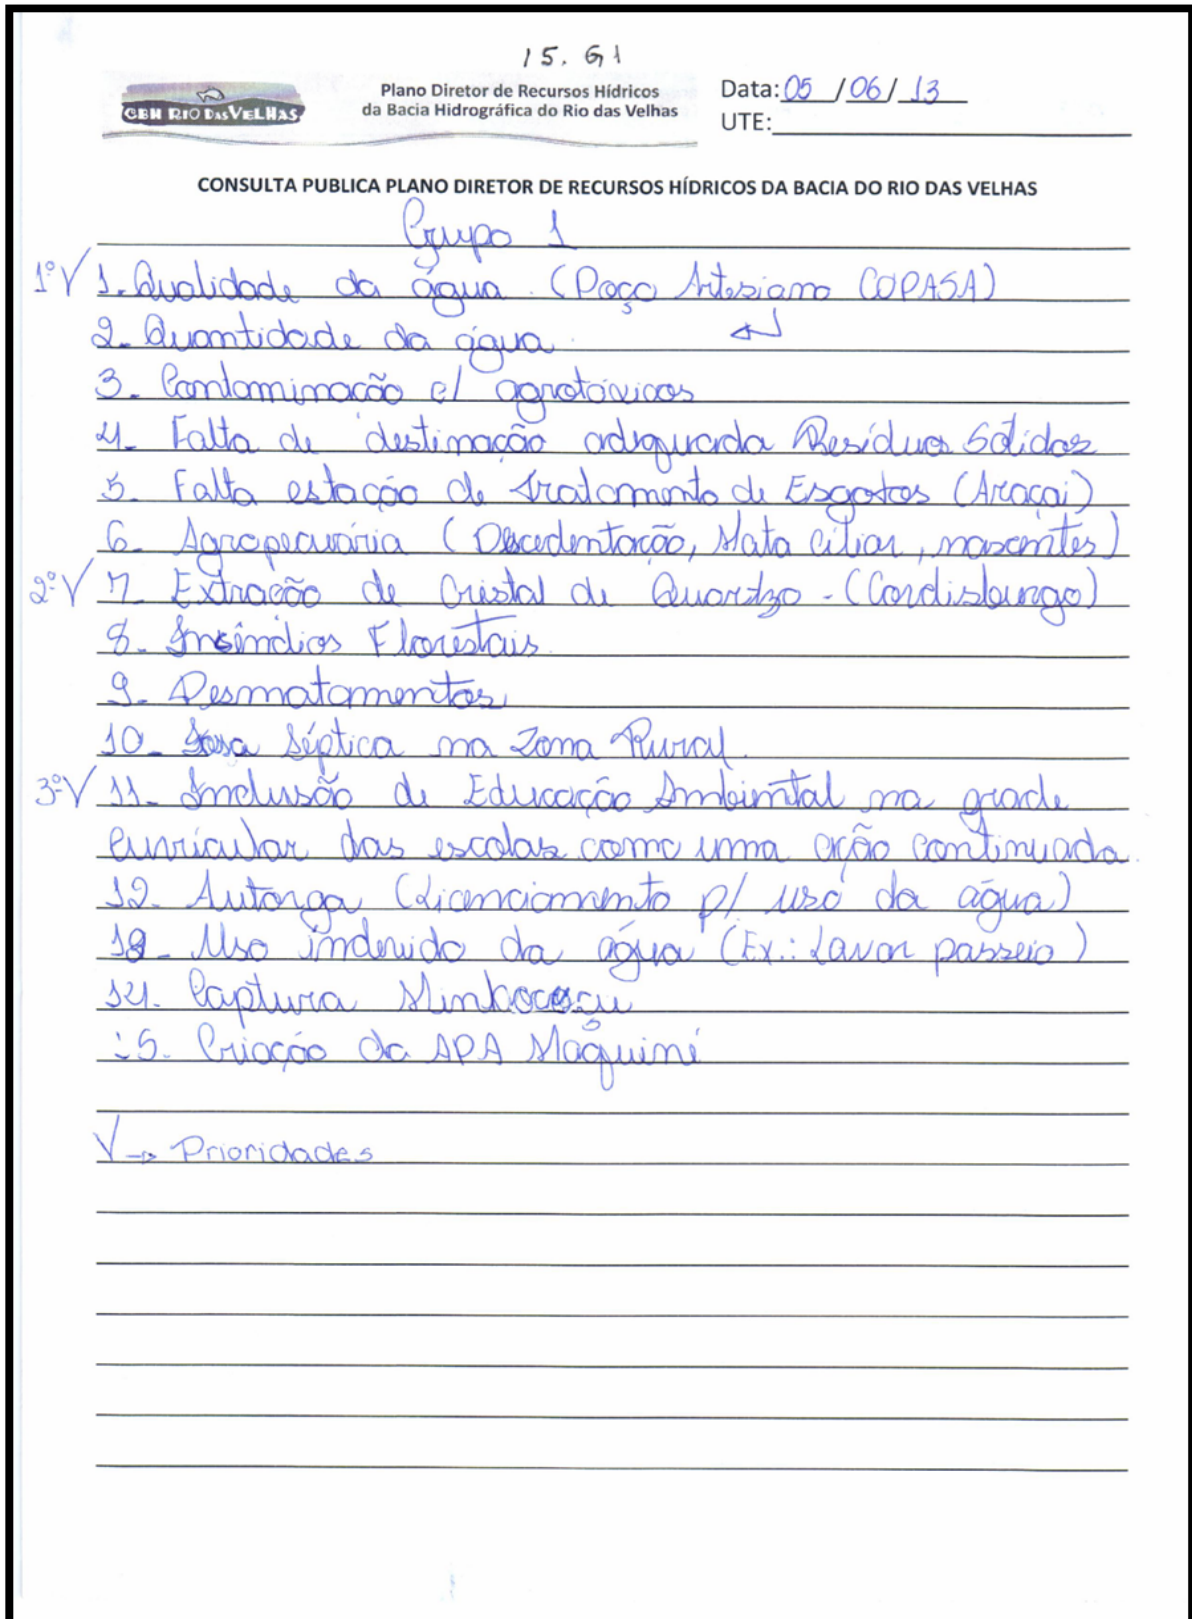 15. G1
CBH RIO DAS VELHAS
Plano Diretor de Recursos Hídricos
da Bacia Hidrográfica do Rio das Velhas
Data: 05/06/13
UTE:
CONSULTA PUBLICA PLANO DIRETOR DE RECURSOS HÍDRICOS DA BACIA DO RIO DAS VELHAS
Grupo 1
1º V 1. Qualidade da água. (Poço Artesiano COPASA)
2. Quantidade da água.
3. Contaminação c/ agrotóxicos
4. Falta de destinação adequada Resíduos Sólidos
5. Falta estação de tratamento de Esgotos (Araçaí)
6. Agropecuária (Descedentação, Mata Ciliar, nascentes)
2º V 7. Extração de Cristal de Quartzo - (Cordisburgo)
8. Insêndios Florestais.
9. Desmatamentos
10. Fossa Séptica na Zona Rural.
3º V 11. Inclusão de Educação Ambiental na grade
Curricular das escolas como uma ação continuada.
12. Autorga (Licenciamento p/ uso da água)
13. Uso indevido da água (Ex.: Lavar passeio)
14. Captura Minhocuçu
15. Criação da APA Maquiné
V → Prioridades